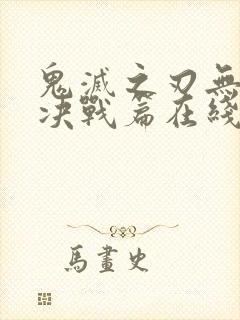 鬼滅之刃無
決戰篇在綫
馬畫史